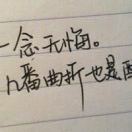 一念无悔。
n番曲折也是